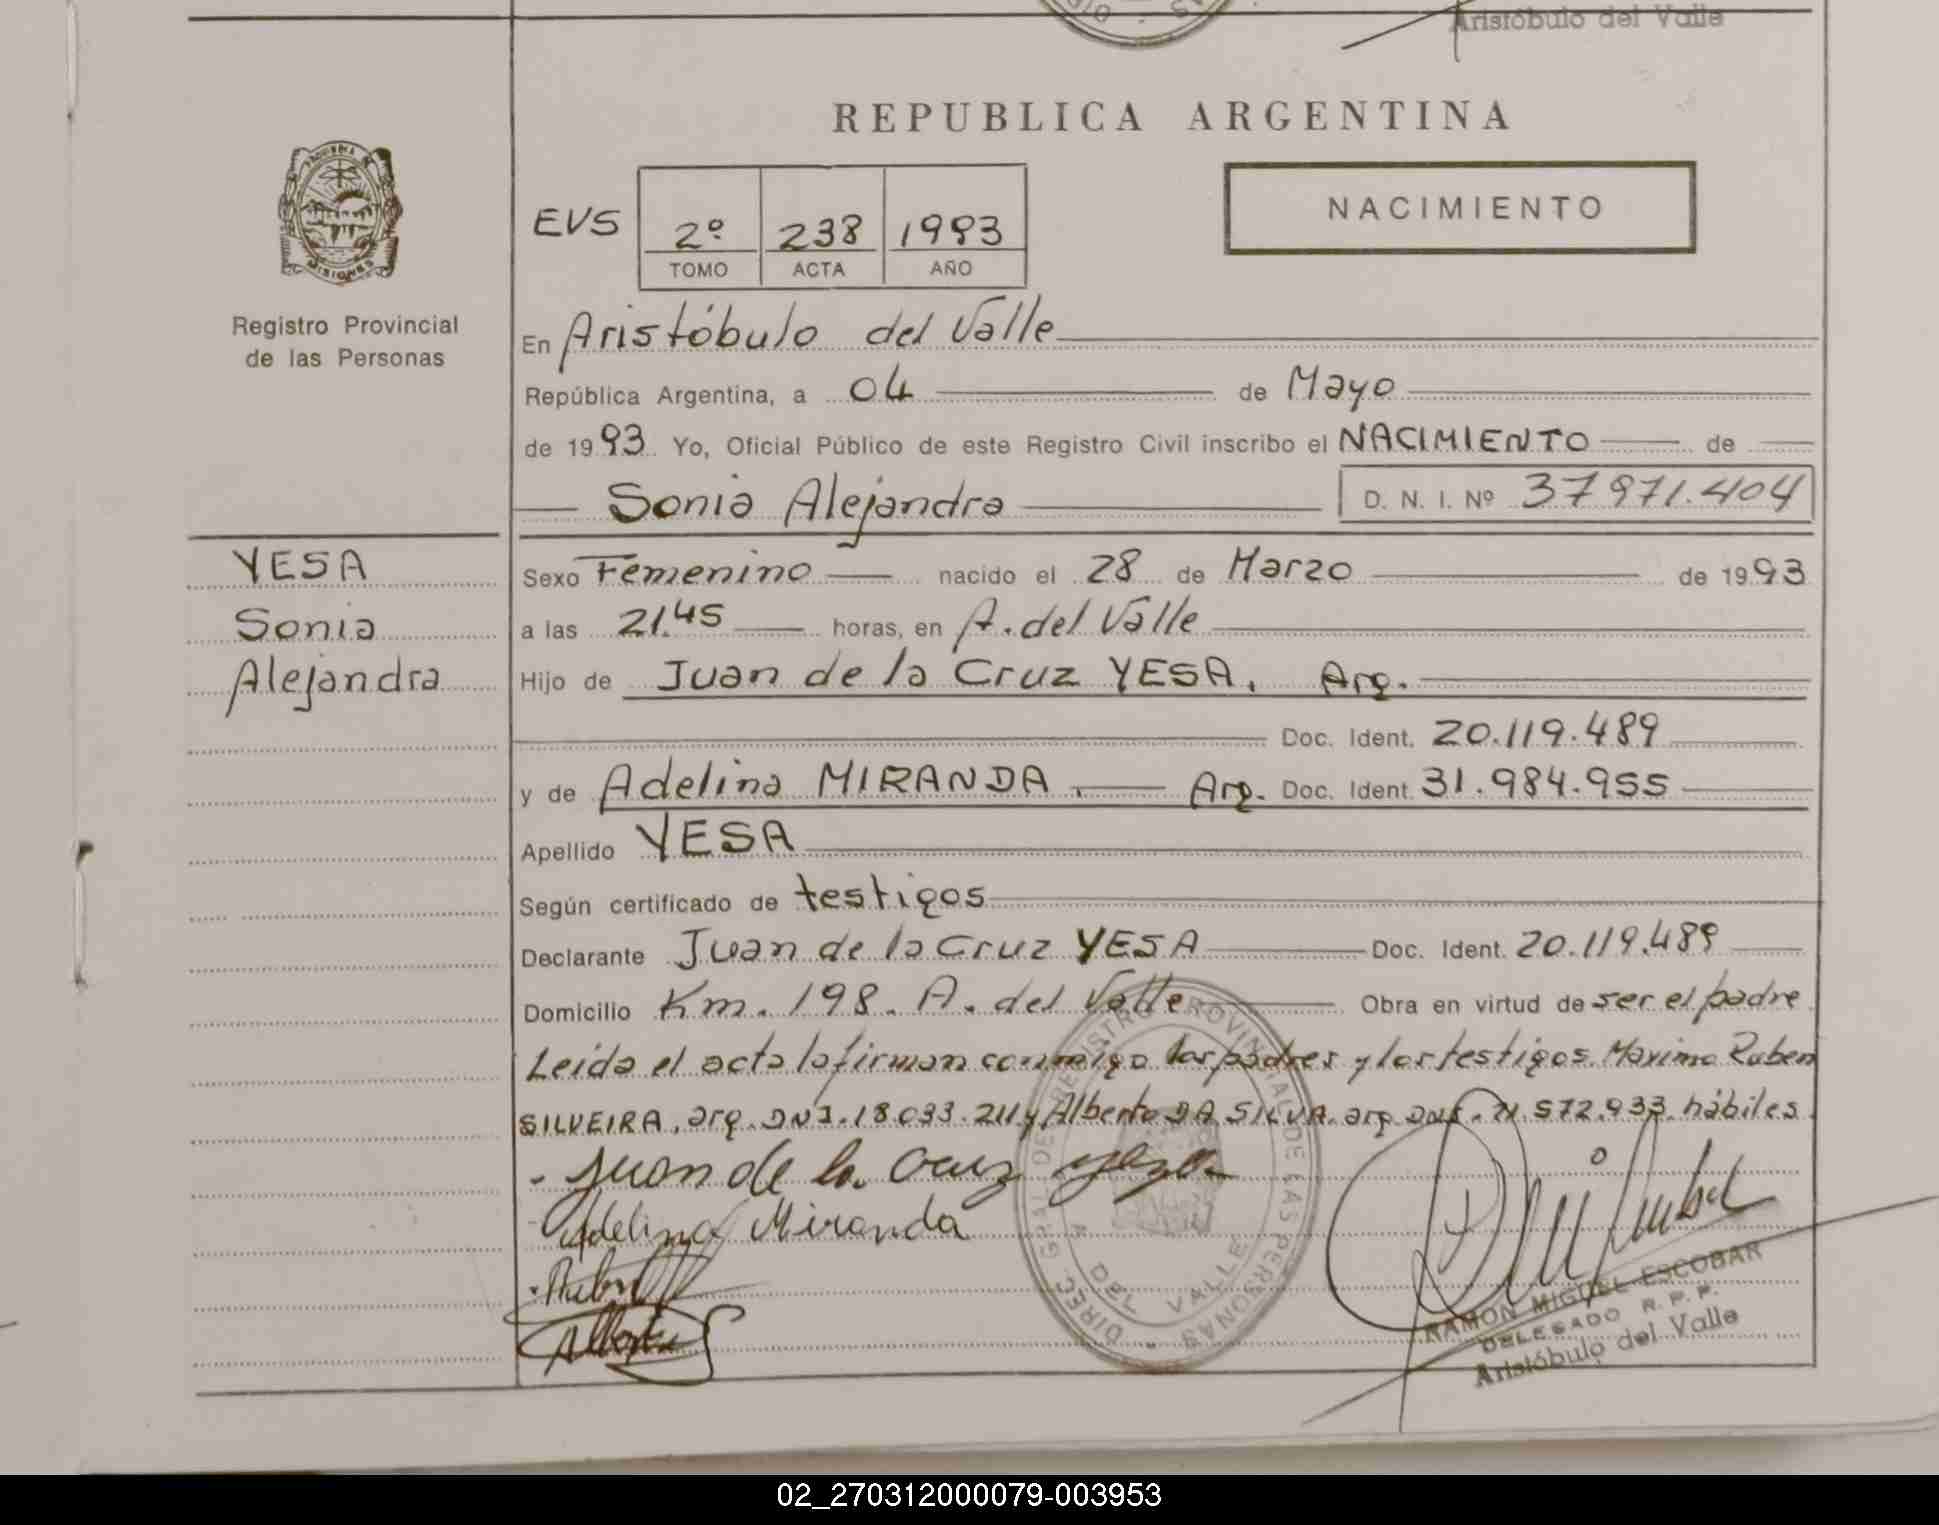 Aristóbulo del Valle
REPUBLICA ARGENTINA
PROVINCIA DE
MISIONES
Registro Provincial
de las Personas
EVS
2º 238 1993
TOMO ACTA AÑO
NACIMIENTO
En Aristóbulo del Valle
República Argentina, a 04 de Mayo
de 1993 Yo, Oficial Público de este Registro Civil inscribo el NACIMIENTO de
Sonia Alejandra D. N. I. Nº 37971.404
YESA
Sonia
Alejandra
Sexo Femenino nacido el 28 de Marzo de 1993
a las 21.45 horas, en A. del Valle
Hijo de Juan de la Cruz YESA. Arg.
Doc. Ident. 20.119.489
y de Adelina MIRANDA. Arg. Doc. Ident. 31.984.955
Apellido YESA
Según certificado de testigos
Declarante Juan de la Cruz YESA Doc. Ident. 20.119.489
Domicilio Km. 198. A. del Valle Obra en virtud de ser el padre
Leida el acta la firman conmigo los padres y los testigos. Maximo Ruben
SILVEIRA, arg. DNI. 18.033.211 y Alberto DA SILVA. arg DNI. 21.572.933. hábiles.
Juan de la Cruz Yesa
Adelina Miranda
Rubn
Alberto
DIREC. GRAL. DE REGISTRO PROVINCIAL DE LAS PERSONAS
A. DEL VALLE
RAMON MIGUEL ESCOBAR
DELEGADO R. P. P.
Aristóbulo del Valle
02_270312000079-003953